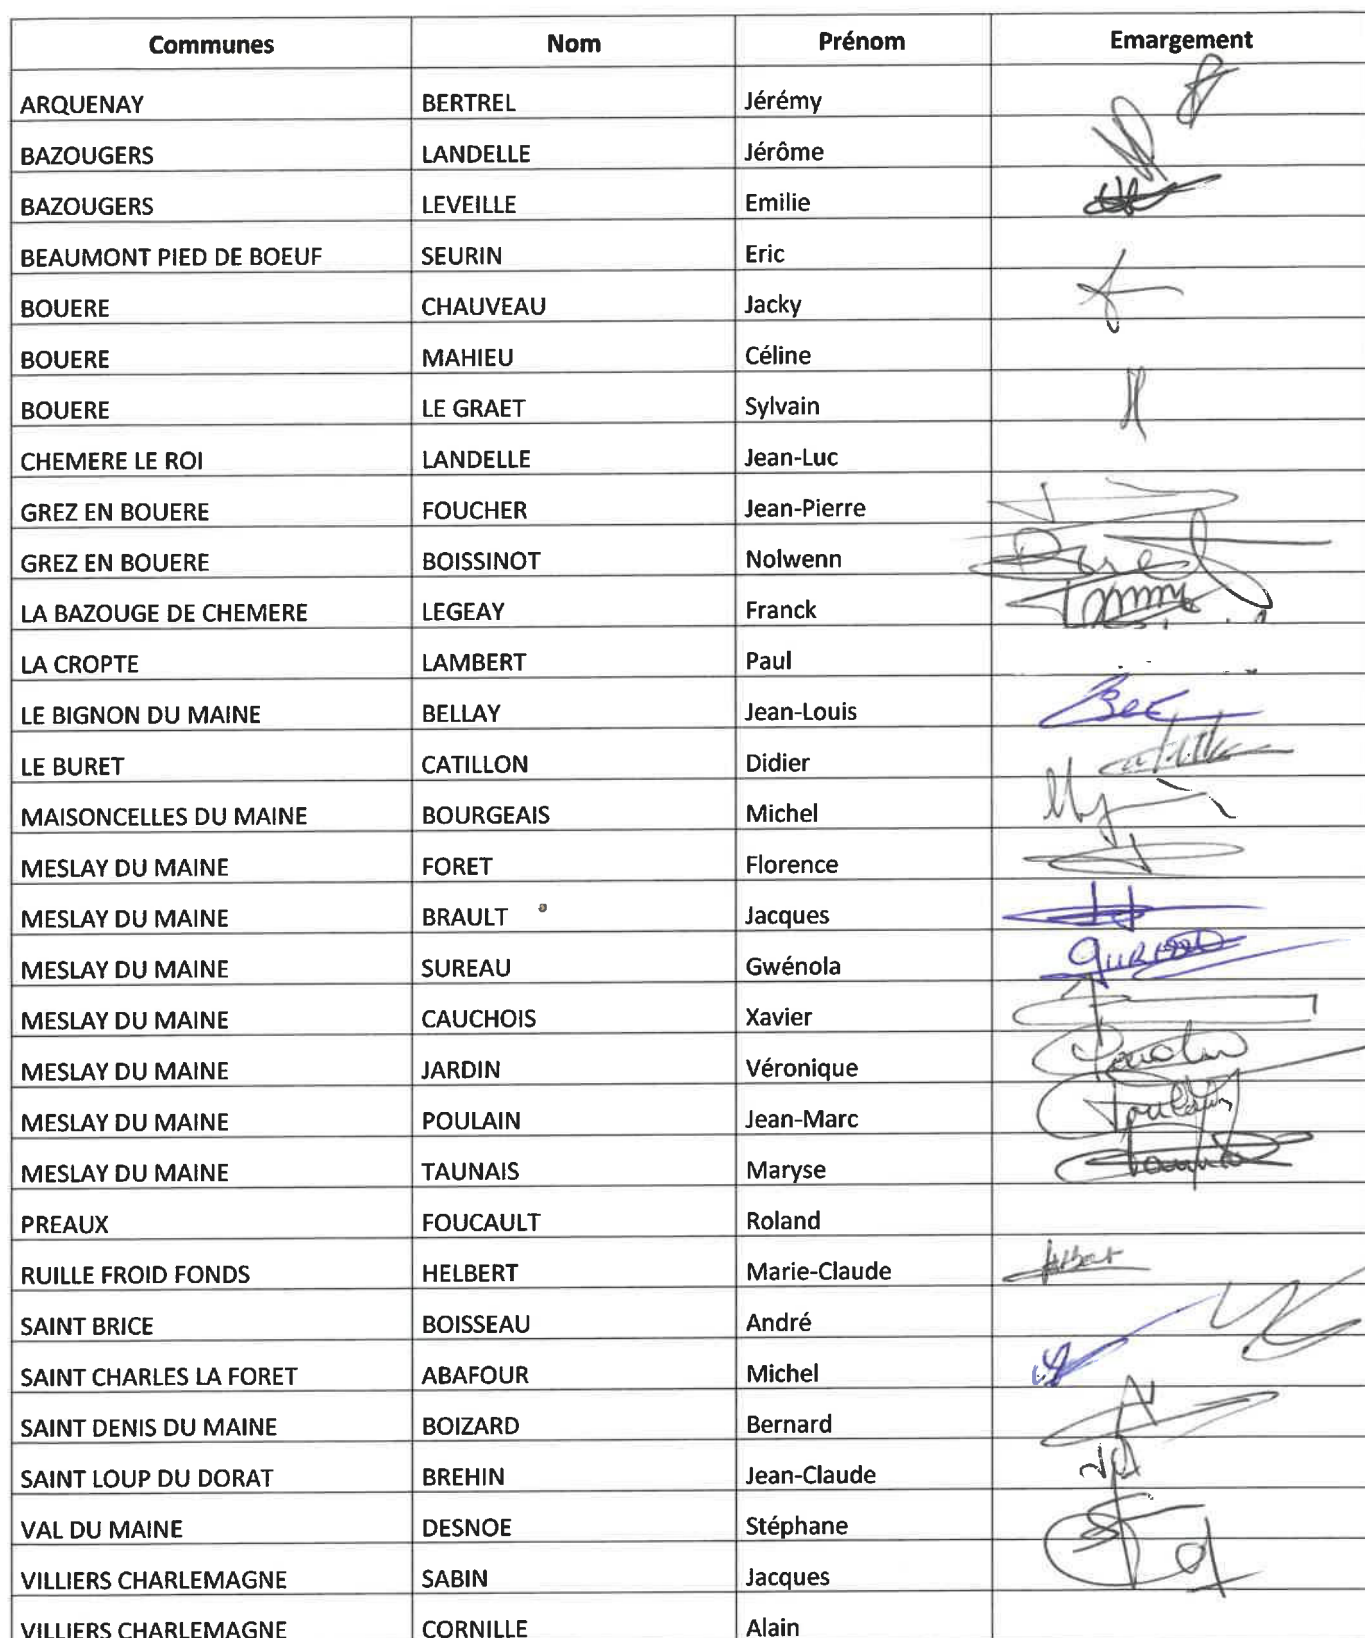 Communes Nom Prénom Emargement
ARQUENAY BERTREL Jérémy
BAZOUGERS LANDELLE Jérôme
BAZOUGERS LEVEILLE Emilie
BEAUMONT PIED DE BOEUF SEURIN Eric
BOUERE CHAUVEAU Jacky
BOUERE MAHIEU Céline
BOUERE LE GRAET Sylvain
CHEMERE LE ROI LANDELLE Jean-Luc
GREZ EN BOUERE FOUCHER Jean-Pierre
GREZ EN BOUERE BOISSINOT Nolwenn
LA BAZOUGE DE CHEMERE LEGEAY Franck
LA CROPTE LAMBERT Paul
LE BIGNON DU MAINE BELLAY Jean-Louis
LE BURET CATILLON Didier
MAISONCELLES DU MAINE BOURGEAIS Michel
MESLAY DU MAINE FORET Florence
MESLAY DU MAINE BRAULT Jacques
MESLAY DU MAINE SUREAU Gwénola
MESLAY DU MAINE CAUCHOIS Xavier
MESLAY DU MAINE JARDIN Véronique
MESLAY DU MAINE POULAIN Jean-Marc Poulain
MESLAY DU MAINE TAUNAIS Maryse
PREAUX FOUCAULT Roland
RUILLE FROID FONDS HELBERT Marie-Claude
SAINT BRICE BOISSEAU André
SAINT CHARLES LA FORET ABAFOUR Michel
SAINT DENIS DU MAINE BOIZARD Bernard
SAINT LOUP DU DORAT BREHIN Jean-Claude
VAL DU MAINE DESNOE Stéphane
VILLIERS CHARLEMAGNE SABIN Jacques
VILLIERS CHARLEMAGNE CORNILLE Alain